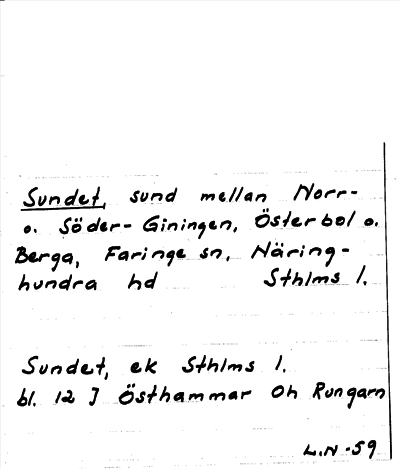 Sundet, sund mellan Norr-
o. Söder-Giningen, Österbol o.
Berga, Faringe sn, Näring-
hundra hd Sthlms l.
Sundet, ek Sthlms l.
bl. 12 J Östhammar Oh Rungarn
L.N -59